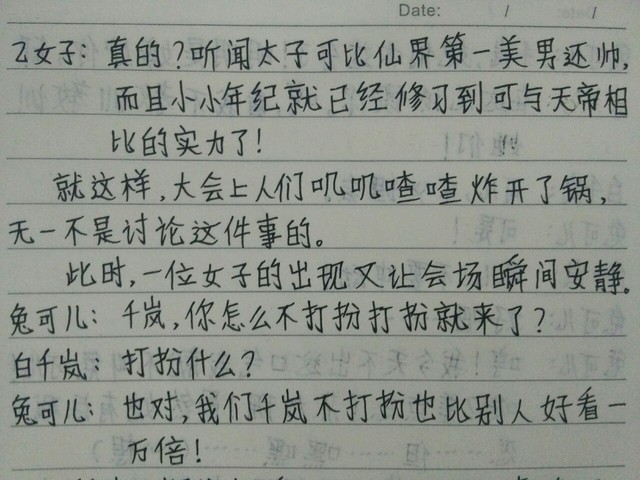 Date: / /
乙女子：真的？听闻太子可比仙界第一美男还帅，
而且小小年纪就已经修习到可与天帝相
比的实力了！
就这样，大会上人们叽叽喳喳炸开了锅，
无一不是讨论这件事的。
此时，一位女子的出现又让会场瞬间安静。
兔可儿：千岚，你怎么不打扮打扮就来了？
白千岚：打扮什么？
兔可儿：也对，我们千岚不打扮也比别人好看一
万倍！